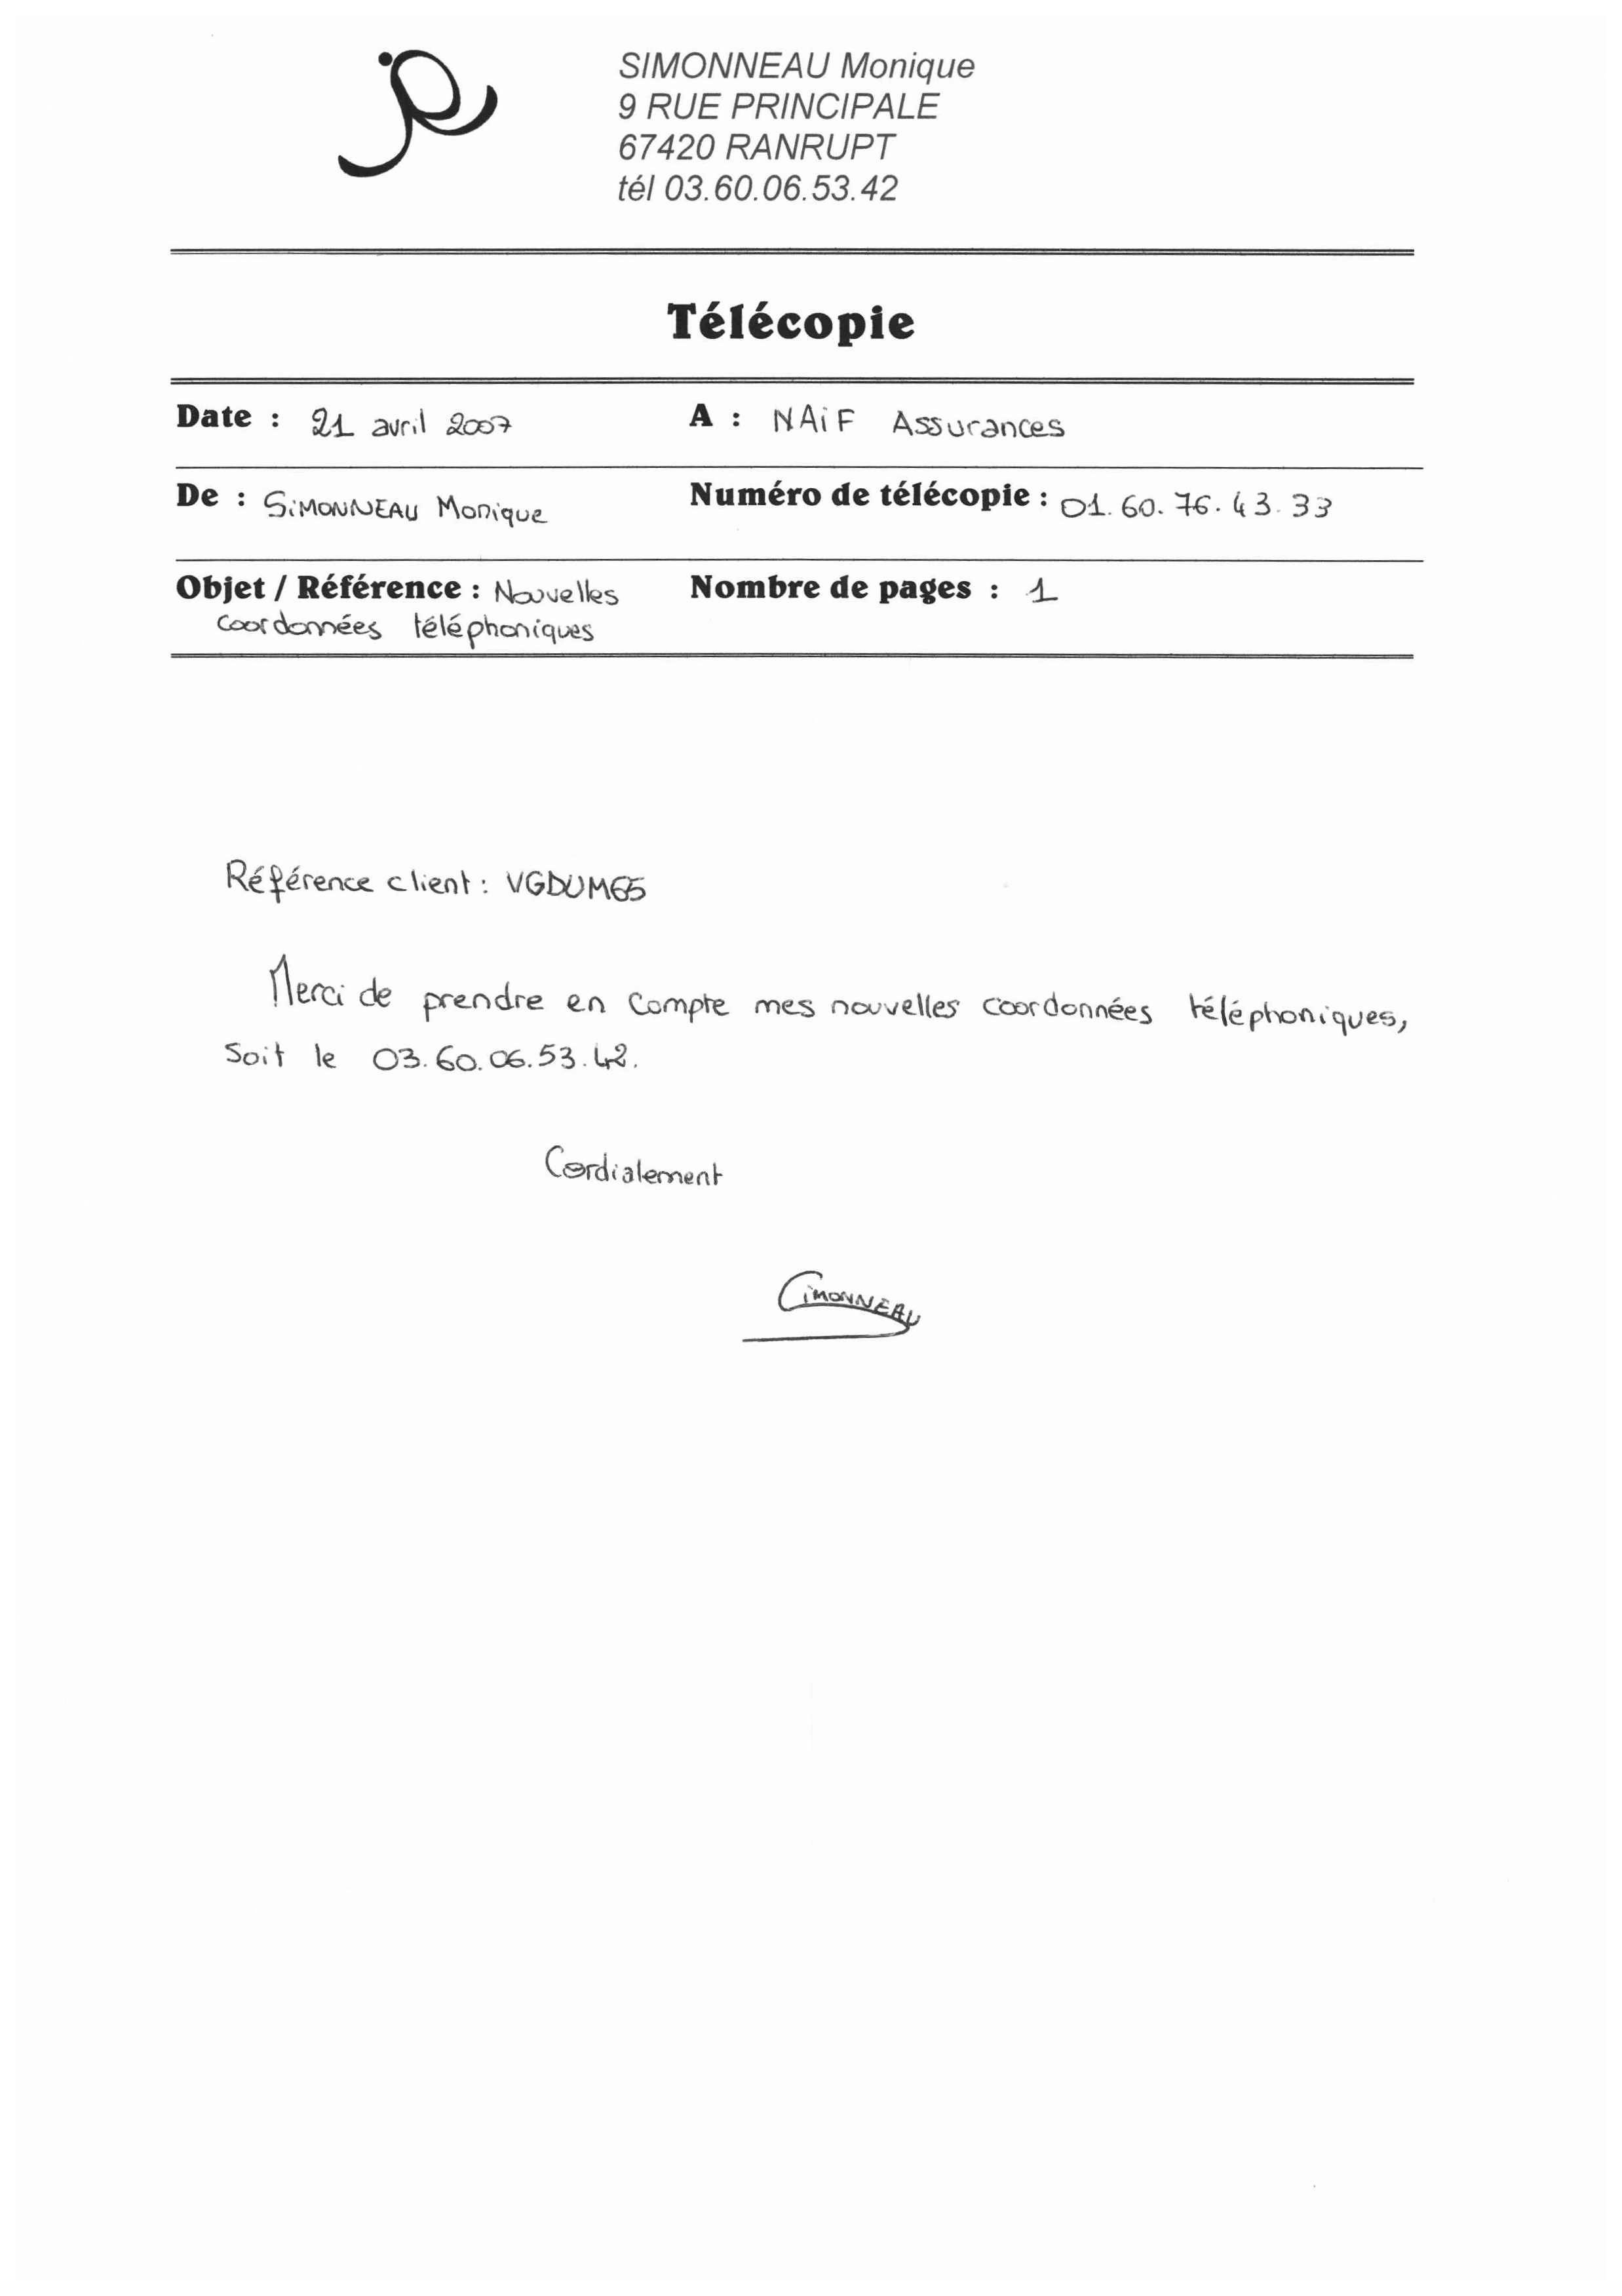 SIMONNEAU Monique
9 RUE PRINCIPALE
67420 RANRUPT
tél 03.60.06.53.42
Télécopie
Date : 21 avril 2007 A : NAiF Assurances
De : SiMONNEAU Monique Numéro de télécopie : 01.60.76.43.33
Objet / Référence : Nouvelles Nombre de pages : 1
coordonnées téléphoniques
Référence client : VGDUM65
Merci de prendre en compte mes nouvelles coordonnées téléphoniques,
Soit le 03.60.06.53.42.
Cordialement
SiMONNEAU